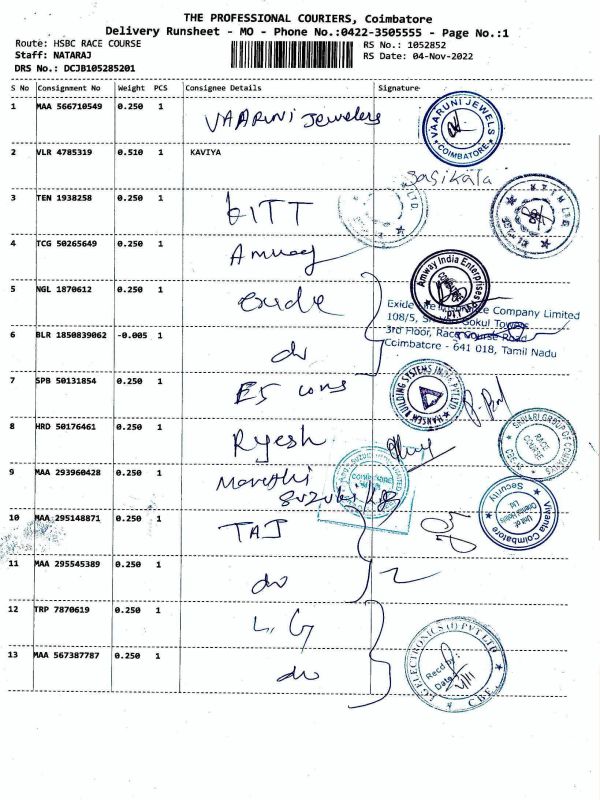 THE PROFESSIONAL COURIERS, Coimbatore
Delivery Runsheet - MO - Phone No.:0422-3505555 - Page No.:1
Route: HSBC RACE COURSE
RS No.: 1052852
Staff: NATARAJ
RS Date: 04-Nov-2022
DRS No.: DCJB105285201
S No Consignment No Weight PCS Consignee Details Signature
1 MAA 566710549 0.250 1 VAARUNi Jewelers
VAARUNI JEWELS
COIMBATORE
2 VLR 4785319 0.510 1 KAVIYA
Sasikala
3 TEN 1938258 0.250 1
4 TCG 50265649 0.250 1 Amway
Amway India Enterprises Pvt Ltd
5 NGL 1870612 0.250 1 exide
Exide Life Insurance Company Limited
108/5, Gokul Towers
3rd Floor, Race Course Road
Coimbatore - 641 018, Tamil Nadu
6 BLR 1850839062 -0.005 1 do
7 SPB 50131854 0.250 1 E5 cons
HANSEN BUILDING SYSTEMS PVT LTD
8 HRD 50176461 0.250 1
RACE COURSE
9 MAA 293960428 0.250 1 Maruthi
Suzuki
Vivanta Coimbatore
Security
Unit of
Ltd
10 MAA 295148871 0.250 1 TAJ
11 MAA 295545389 0.250 1 do
12 TRP 7870619 0.250 1 L.G
13 MAA 567387787 0.250 1 do
LG ELECTRONICS (I) PVT LTD
Recd by:
Date
CBE